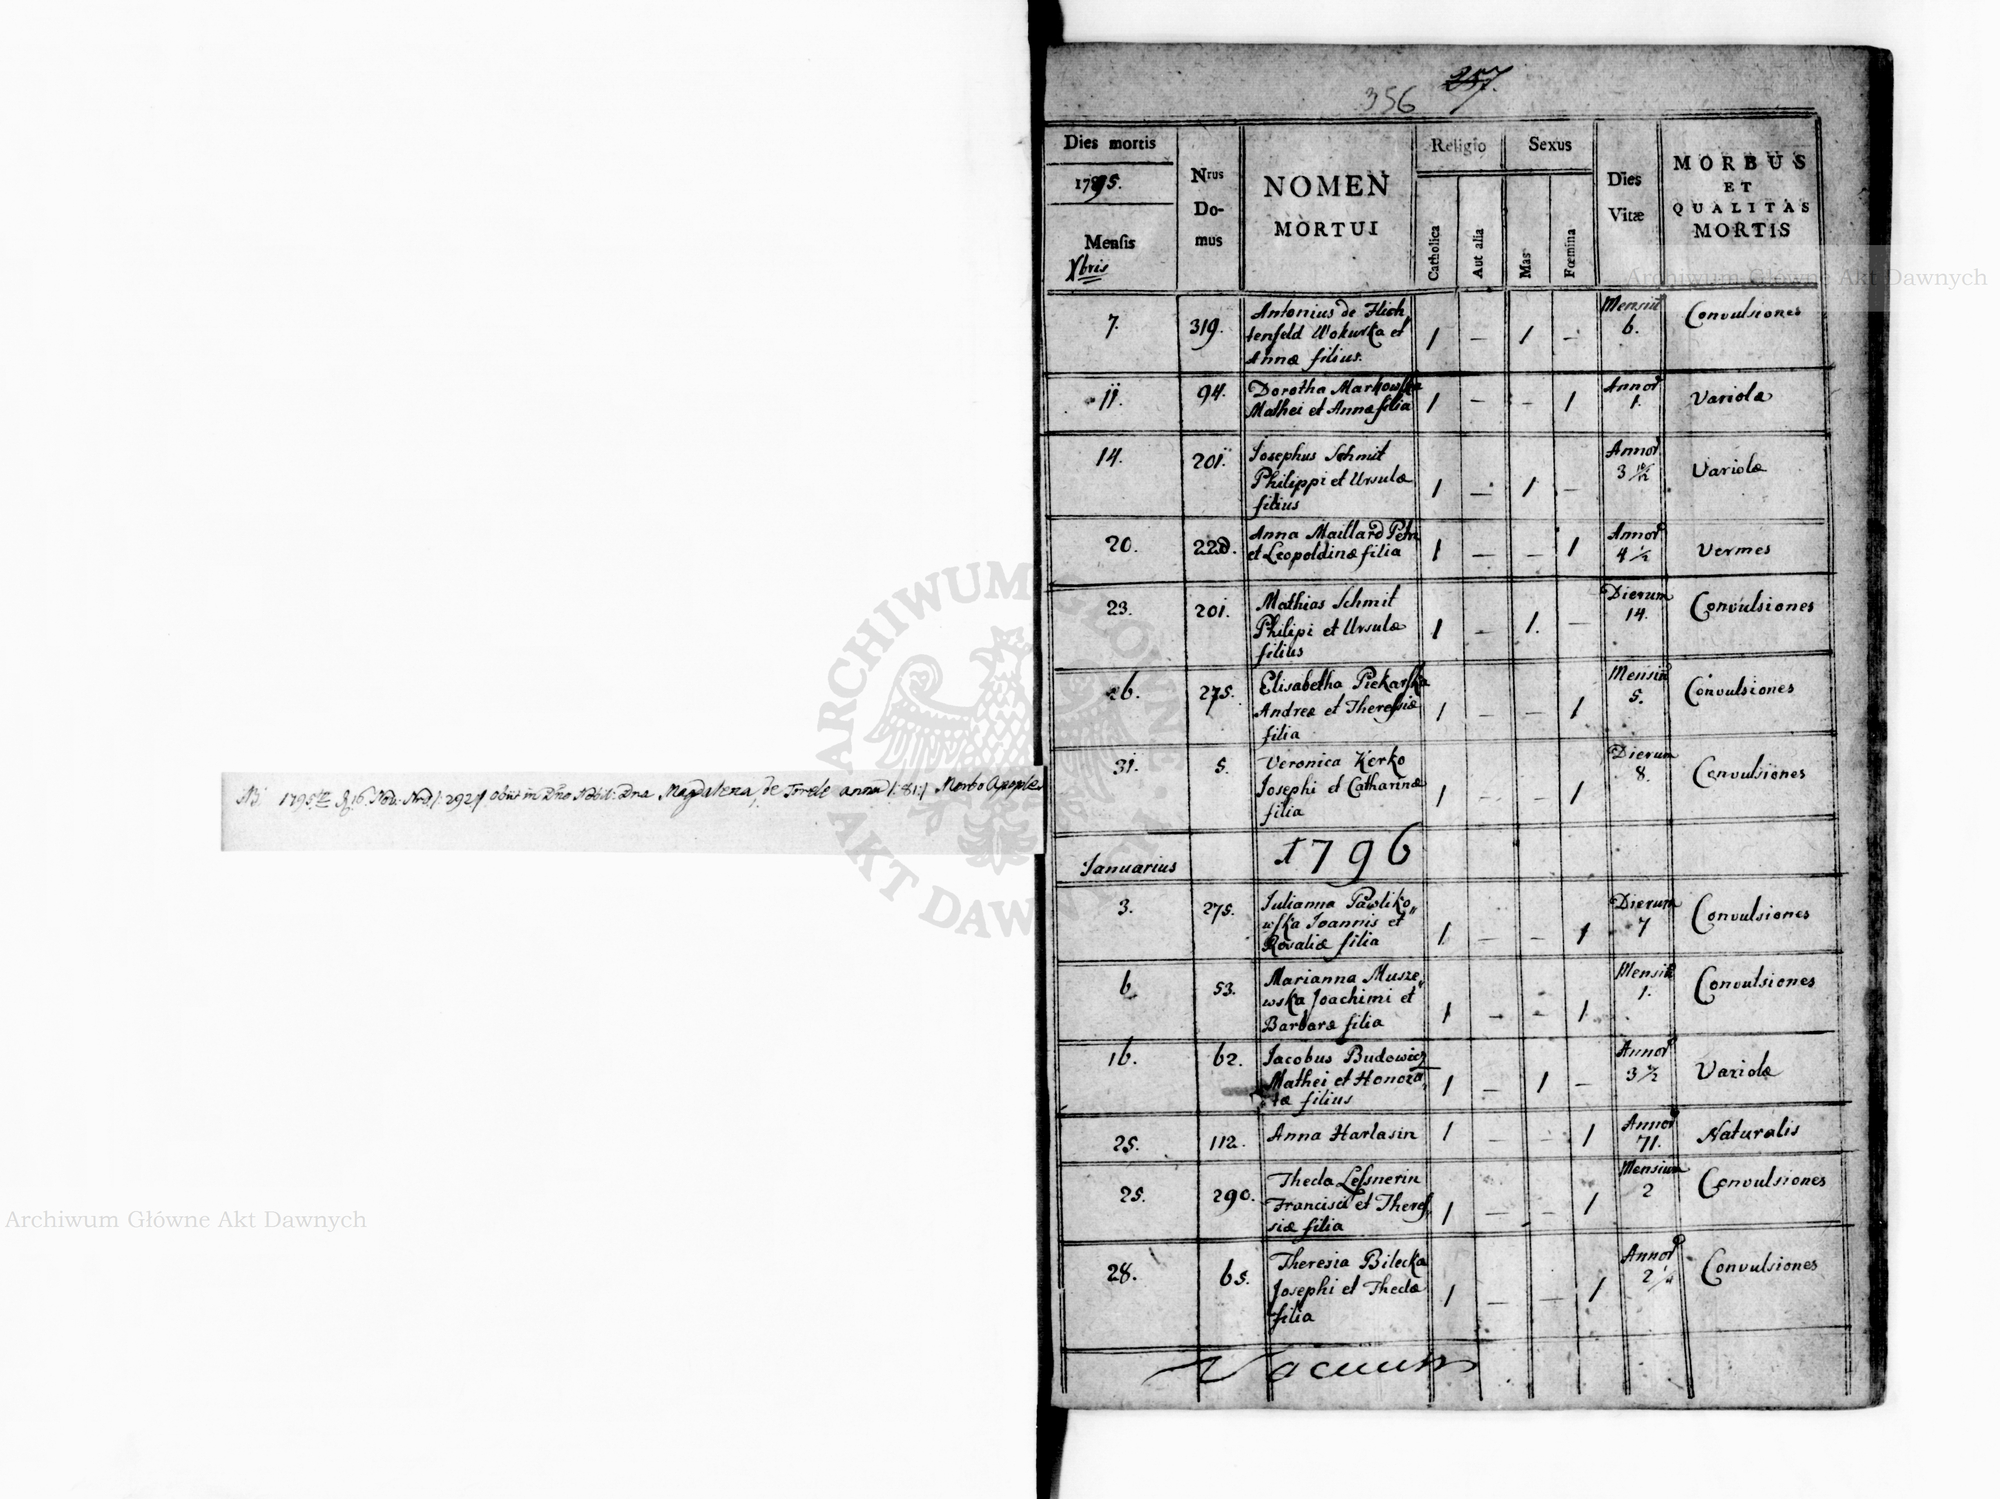 257.
356
Dies mortis
1795.
Mensis
Xbris
Nrus
Do-
mus
NOMEN
MORTUI
Religio
Catholica
Aut alia
Sexus
Mas
Fœmina
Dies
Vitæ
MORBUS
ET
QUALITAS
MORTIS
7. 319. Antonius de
tenfeld Wokurka et
Annæ filius. 1 – 1 – 6. Convulsiones
11. 94. Dorotha Markowska
Mathei et Annæ filia 1 – – 1 Annor 1. Variolæ
14. 201. Josephus Schmit
Philippi et Ursulæ
filius 1 – 1 – Annor 3 Variolæ
20. Anna Maillard Petri
et Leopoldinæ filia 1 – – 1 Annor 4 1/2 Vermes
23. 201. Mathias Schmit
Philipi et Ursulæ
filius 1 – 1. – Dierum 14. Convulsiones
26. 275. Elisabetha Piekarska
Andreæ et Theresiæ
filia 1 – – 1 5. Convulsiones
31. 5. Veronica Kerko
Josephi et Catharinæ
filia 1 – – 1 Dierum 8. Convulsiones
Januarius 1796
3. 275. Julianna Pawliko„
wska Joannis et
Rosaliæ filia 1 – – 1 Dierum 7 Convulsiones
6 53. Marianna Musze„
wska Joachimi et
Barbaræ filia 1 – – 1 1. Convulsiones
16. 62. Jacobus Budowicz
Mathei et Honora„
tæ filius 1 – 1 – Annor 3 Variolæ
25. 112. Anna Harlasin 1 – – 1 Annor 71. Naturalis
25. 290. Thecla Lessnerin
Francisci et There„
siæ filia 1 – – 1 Mensium 2 Convulsiones
28. 65. Theresia Bilecka
Josephi et Theclæ
filia 1 – – 1 Annor 2 Convulsiones
Vacuum
1795 16. Nov: 292 obiit Magdalena de annor 81 Morbo
Archiwum Główne Akt Dawnych
Archiwum Główne Akt Dawnych
ARCHIWUM GŁÓWNE
AKT DAWNYCH